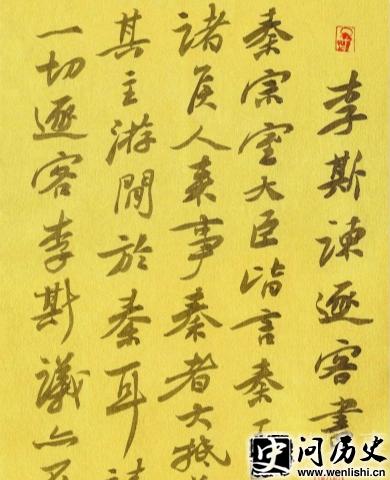 李斯諫逐客書
秦宗室大臣皆言秦
諸侯人来事秦者大抵
其主游間於秦耳請
一切逐客李斯議亦
问历史
www.wenlishi.cn